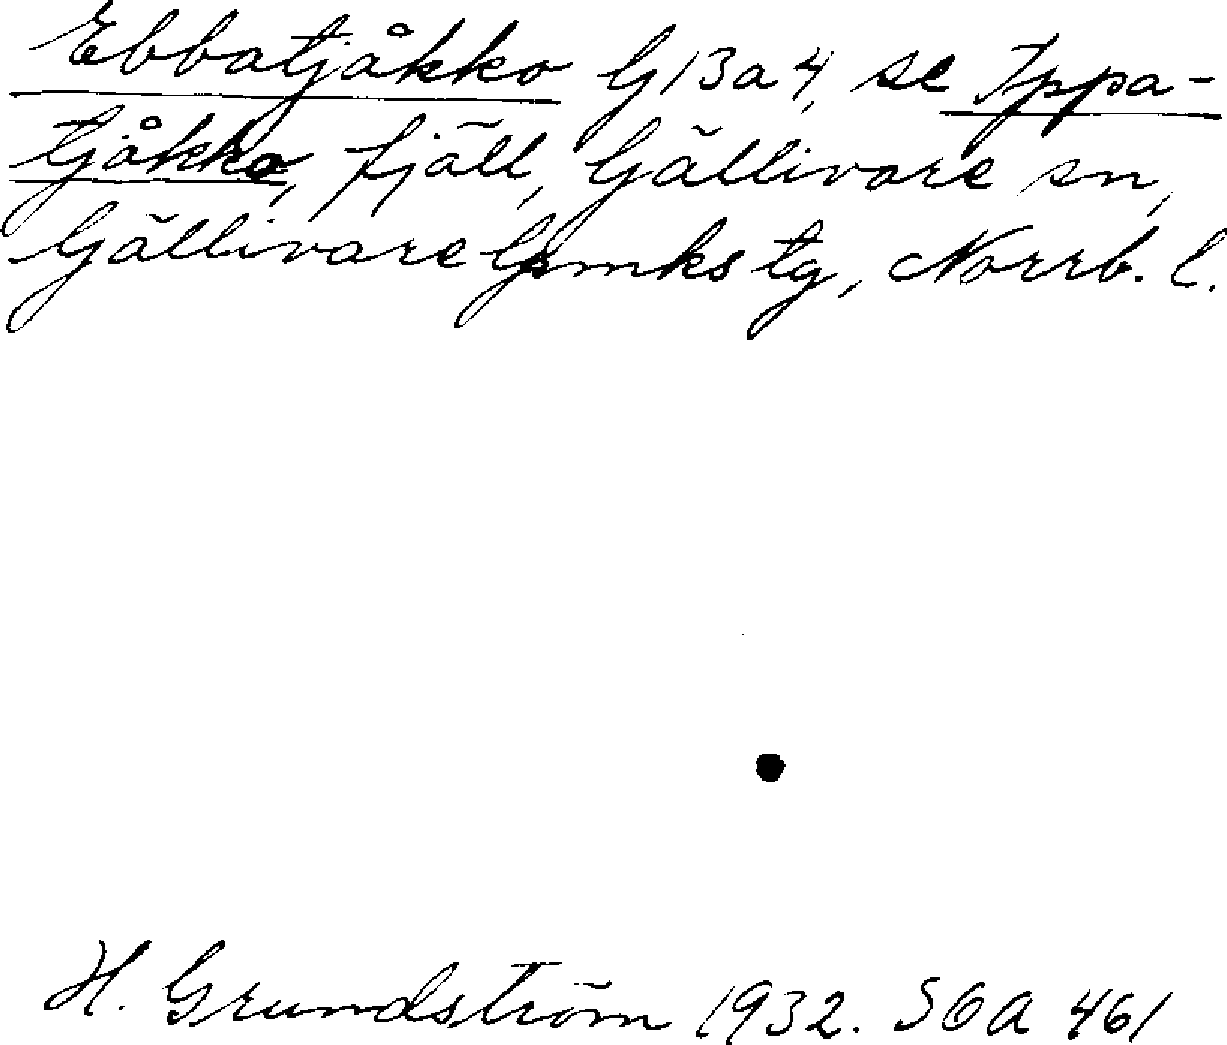 Ebbatjåkko G13a4, se Ippa-
tjåkko, fjäll, Gällivare sn,
Gällivare lpmks tg, Norrb. l.
H. Grundström 1932. SOA 461